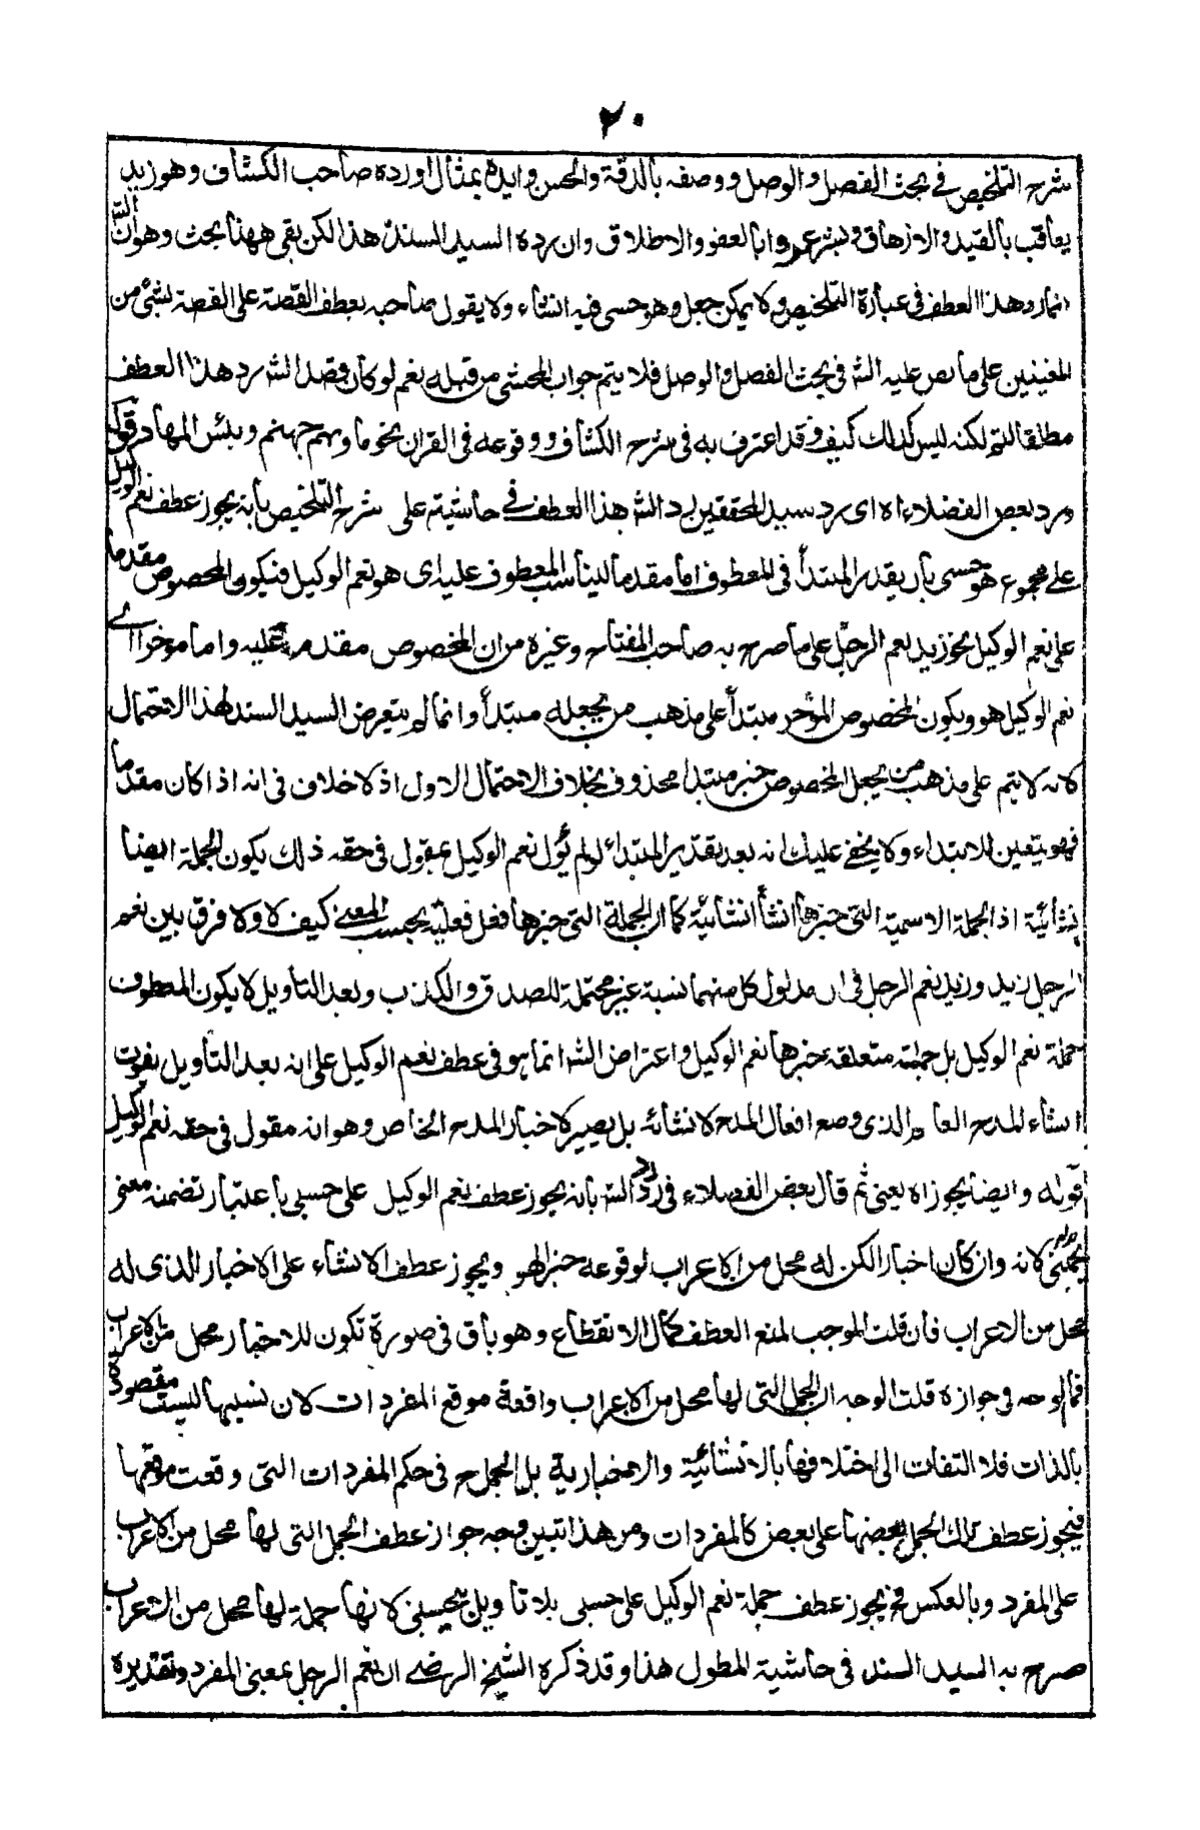 ٢٠
شرح التلخيص في بحث الفصل والوصل ووصفه بالدقة والحسن وايده بمثال اورده صاحب الكشاف وهو زيد
يعاقب بالقيد والازهاق وبشر عمروا بالعفو والاطلاق وان رده السيد السند هذا لكن بقي ههنا بحث وهو ان الش
انما رد هذا العطف في عبارة التلخيص ولا يمكن جعل وهو حسبي فيه انشاء ولا يقول صاحبه بعطف القصة على القصة بشئ من
المعنيين على ما نص عليه الش في بحث الفصل والوصل فلا يتم جواب المحشي من قبله نعم لو كان قصد الش رد هذا العطف
مطلقا لتم لكنه ليس كذلك كيف وقد اعترف به في شرح الكشاف ووقوعه في القران نحو ماوىهم جهنم وبئس المهاد قوله
ورد بعض الفضلاء اه اى رد سيد المحققين رد الش هذا العطف في حاشيته على شرح التلخيص بانه يجوز عطف نعم الوكيل
على مجموع هو حسبي بان يقدر المبتدأ في المعطوف اما مقدما ليناسب المعطوف عليه اى هو نعم الوكيل فيكون المخصوص مقدما
على نعم الوكيل نحو زيد نعم الرجل على ما صرح به صاحب المفتاح وغيره من ان المخصوص مقدم عليه واما موخرا اى
نعم الوكيل هو ويكون المخصوص المؤخر مبتدأ على مذهب من يجعله مبتدأ وانما لم يتعرض السيد السند لهذا الاحتمال
لانه لا يتم على مذهب من يجعل المخصوص خبر مبتدا محذوف بخلاف الاحتمال الاول اذ لا خلاف في انه اذا كان مقدما
فهو يتعين للابتداء ولا يخفى عليك انه بعد تقدير المبتداء لو لم يؤل نعم الوكيل بمقول في حقه ذلك يكون الجملة ايضا
انشائية اذ الجملة الاسمية التي خبرها انشأ انشائية كما ان الجملة التي خبرها فعل فعلية بحسب المعنى كيف لا ولا فرق بين نعم
الرجل زيد وزيد نعم الرجل في ان مدلول كل منهما نسبة غير محتملة للصدق والكذب وبعد التأويل لا يكون المعطوف
جملة نعم الوكيل بل جملة متعلقة خبرها نعم الوكيل واعتراض الش انما هو في عطف نعم الوكيل على انه بعد التأويل يفوت
انشاء المدح العام الذي وضع افعال المدح لانشائه بل يصير لاخبار المدح الخاص وهو انه مقول في حقه نعم الوكيل
قوله وايضا يجوز اه يعني ثم قال بعض الفضلاء في رد الش بانه يجوز عطف نعم الوكيل على حسبي باعتبار تضمنه معنى
يحسبني لانه وان كان اخبارا لكن له محل من الاعراب لوقوعه خبرا لهو ويجوز عطف الانشاء على الاخبار الذي له
محل من الاعراب فان قلت الموجب لمنع العطف كمال الانقطاع وهو باق في صورة تكون للاخبار محل من الاعراب
فما الوجه في جوازه قلت الوجه ان الجمل التي لها محل من الاعراب واقعة موقع المفردات لان نسبها ليست مقصودة
بالذات فلا التفات الى اختلافها بالانشائية والاخبارية بل الجمل ح في حكم المفردات التي وقعت موقعها
فيجوز عطف تلك الجمل بعضها على بعض كالمفردات ومن هذا تبين وجه جواز عطف الجمل التي لها محل من الاعراب
على المفرد وبالعكس فح يجوز عطف جملة نعم الوكيل على حسبي بلا تاويل بيحسبني لانها جملة لها محل من الاعراب
صرح به السيد السند في حاشية المطول هذا وقد ذكره الشيخ الرضي ان نعم الرجل بمعنى المفرد وتقديره